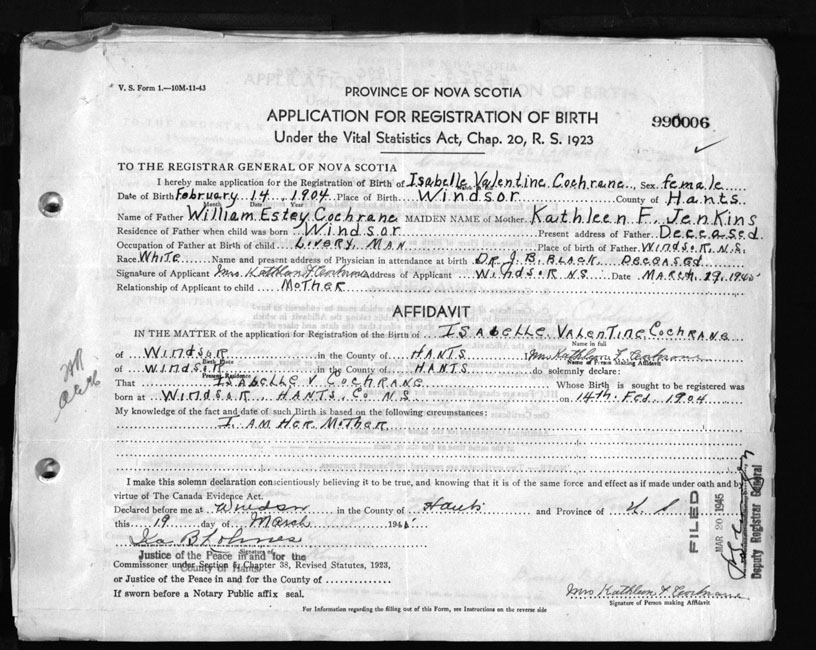 V. S. Form 1.—10M-11-43
PROVINCE OF NOVA SCOTIA
APPLICATION FOR REGISTRATION OF BIRTH
990006
Under the Vital Statistics Act, Chap. 20, R. S. 1923
TO THE REGISTRAR GENERAL OF NOVA SCOTIA
I hereby make application for the Registration of Birth of Isabelle Valentine Cochrane Sex female
Date of Birth February 14 1904 Place of Birth Windsor County of Hants
Month Day Year
Name of Father William Estey Cochrane MAIDEN NAME of Mother Kathleen F. Jenkins
Residence of Father when child was born Windsor Present address of Father Deceased
Occupation of Father at Birth of child Livery Man Place of Birth of Father Windsor N.S.
Race White Name and present address of Physician in attendance at birth Dr J. B. Black Deceased
Signature of Applicant Mrs Kathleen F Cochrane Address of Applicant Windsor N S Date March 19. 1945
Relationship of Applicant to child Mother
AFFIDAVIT
IN THE MATTER of the application for Registration of the Birth of Isabelle Valentine Cochrane
Name in full
of Windsor in the County of Hants Mrs Kathleen F Cochrane
Birth Place Name of Person Making Affidavit
of Windsor in the County of Hants do solemnly declare:
Present Residence
That Isabelle V Cochrane Whose Birth is sought to be registered was
born at Windsor, Hants, Co N.S on 14th Feb. 1904
My knowledge of the fact and date of such Birth is based on the following circumstances:
I Am Her Mother
I make this solemn declaration conscientiously believing it to be true, and knowing that it is of the same force and effect as if made under oath and by
virtue of The Canada Evidence Act.
Declared before me at Windsor in the County of Hants and Province of N S
this 19 day of March 1945
Signature of
Justice of the Peace in and for the
County of Hants
Commissioner under Section 6, Chapter 38, Revised Statutes, 1923,
or Justice of the Peace in and for the County of
If sworn before a Notary Public affix seal.
Mrs Kathleen F Cochrane
Signature of Person making Affidavit
For Information regarding the filling out of this Form, see Instructions on the reverse side
FILED
MAR 20 1945
Deputy Registrar General